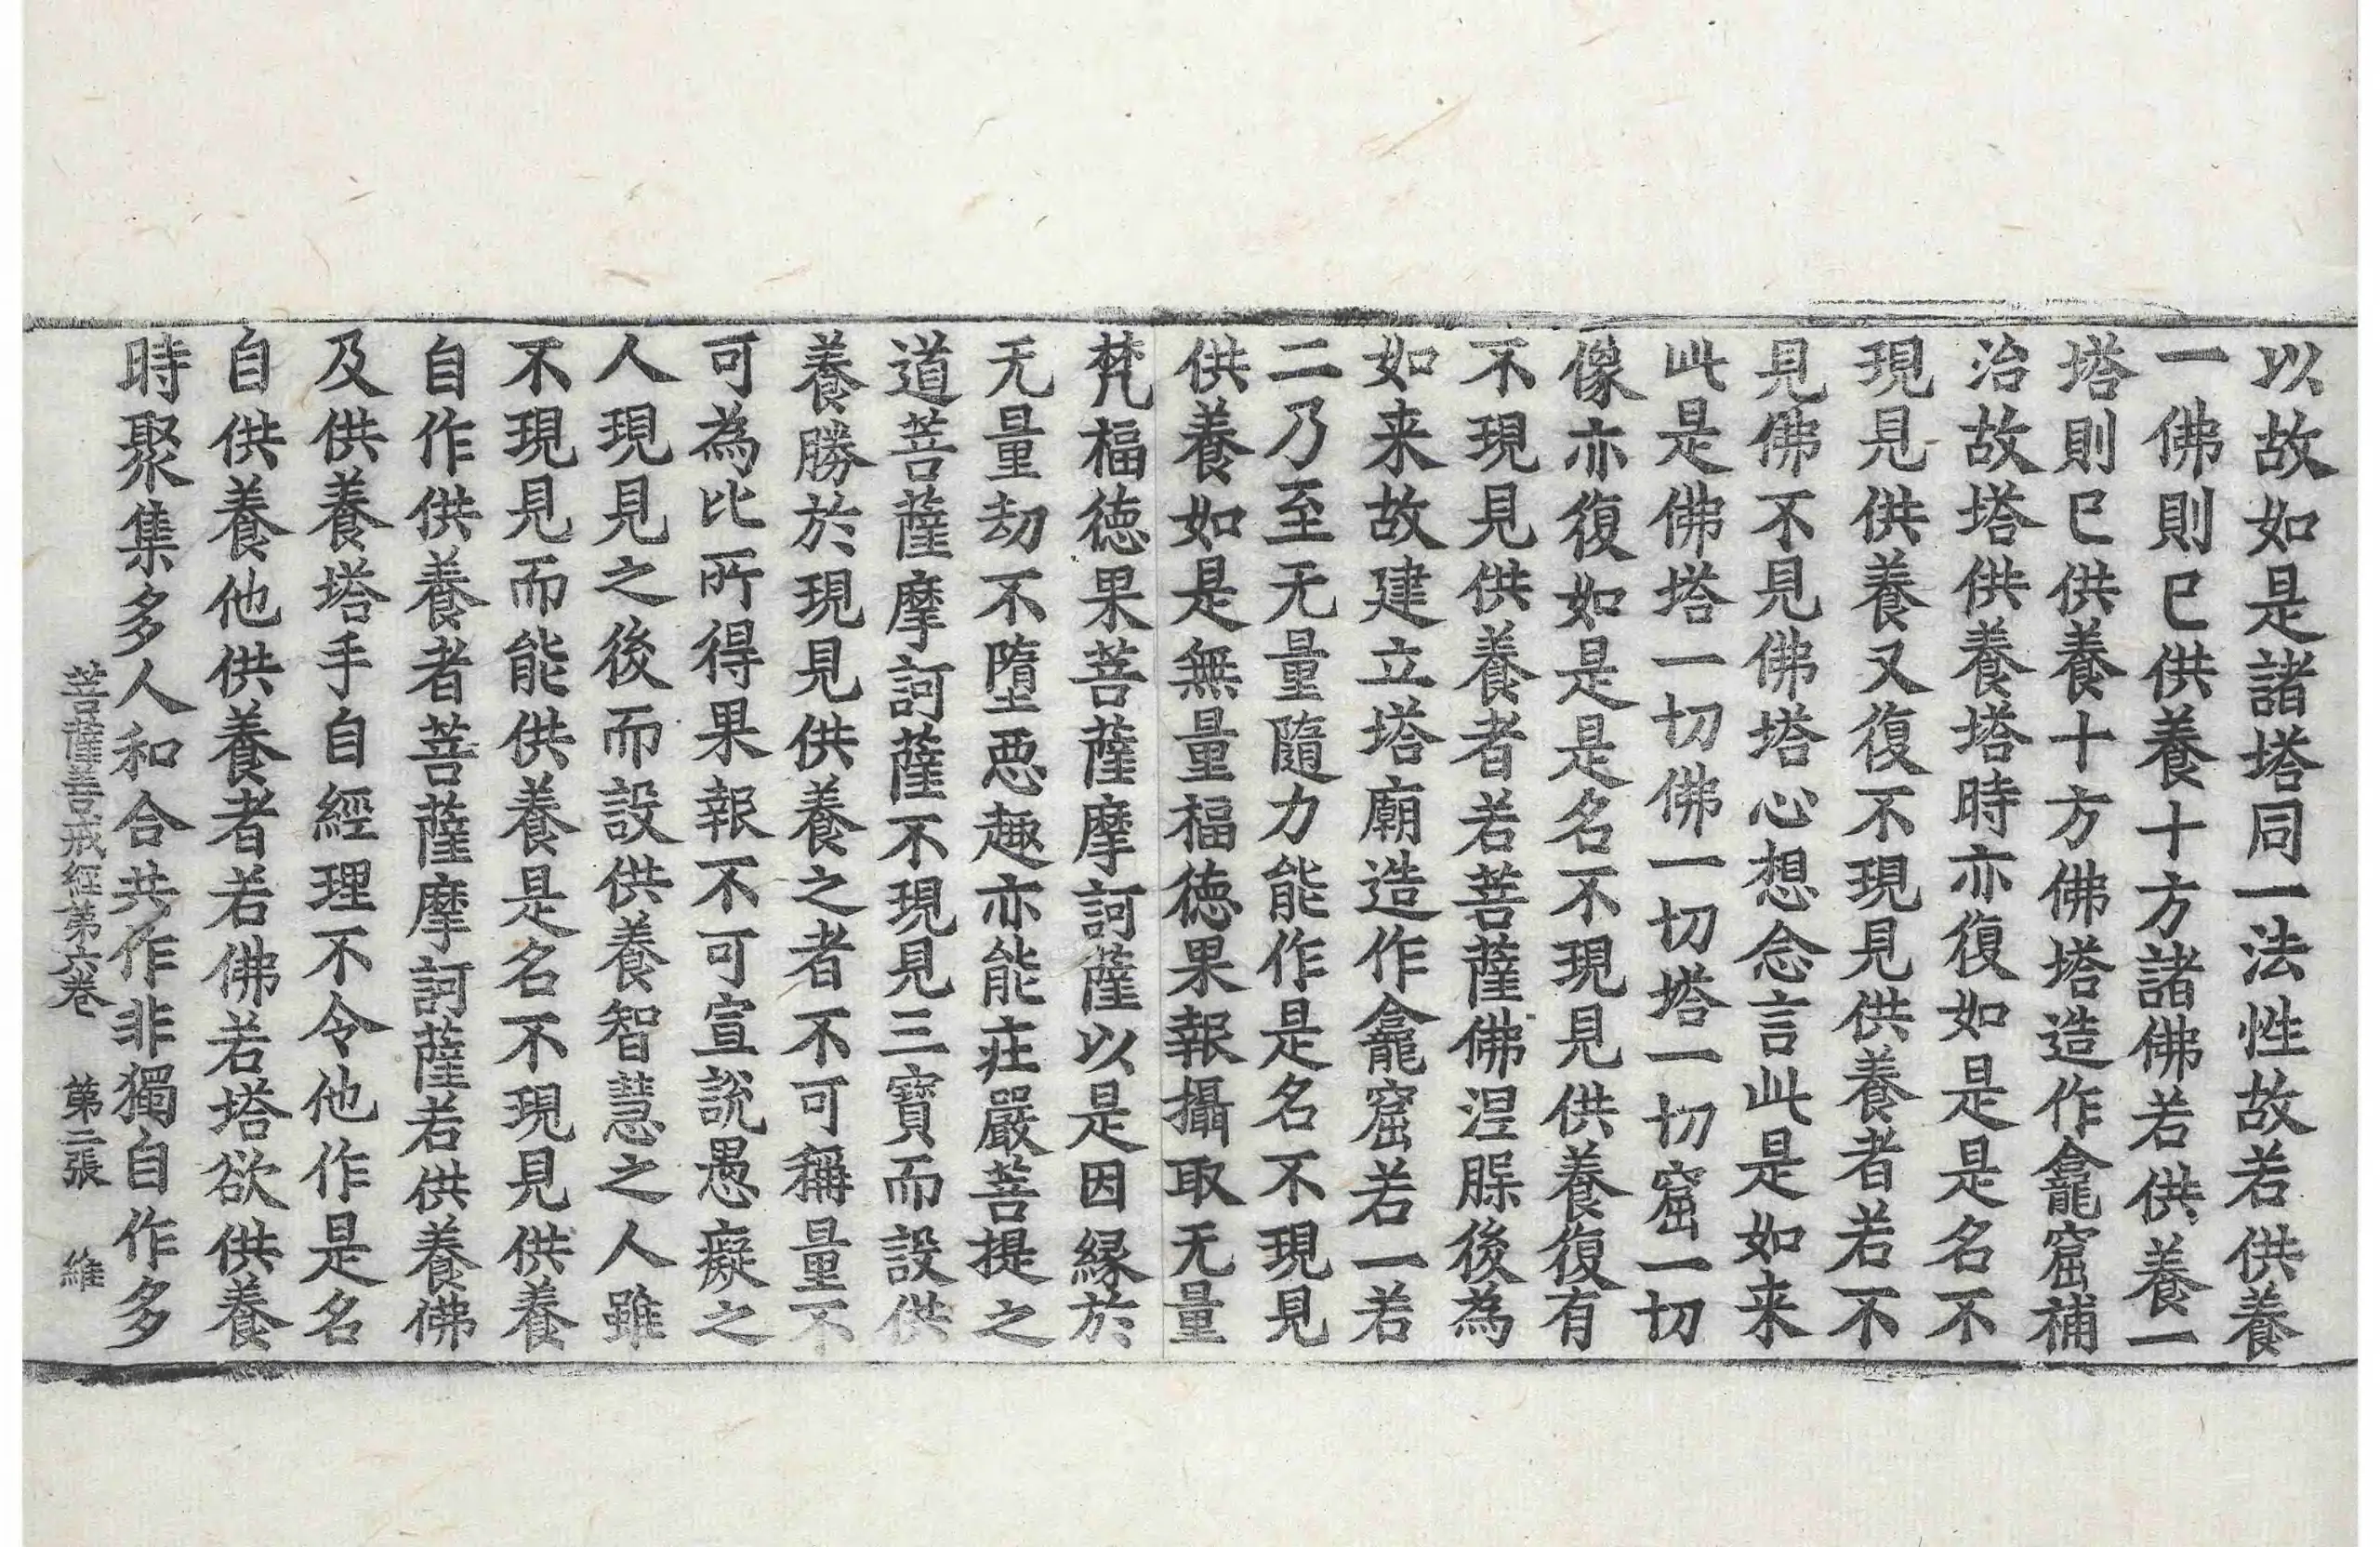 以故如是諸塔同一法性故若供養
一佛則已供養十方諸佛若供養一
塔則已供養十方佛塔造作龕窟補
治故塔供養塔時亦復如是是名不
現見供養又復不現見供養者若不
見佛不見佛塔心想念言此是如来
此是佛塔一切佛一切塔一切窟一切
像亦復如是是名不現見供養復有
不現見供養者若菩薩佛涅脮後為
如来故建立塔廟造作龕窟若一若
二乃至无量隨力能作是名不現見
供養如是無量福徳果報攝取无量
梵福徳果菩薩摩訶薩以是因縁於
无量劫不墮惡趣亦能莊嚴菩提之
道菩薩摩訶薩不現見三寶而設供
養勝於現見供養之者不可稱量不
可為比所得果報不可宣說愚癡之
人現見之後而設供養智慧之人雖
不現見而能供養是名不現見供養
自作供養者菩薩摩訶薩若供養佛
及供養塔手自經理不令他作是名
自供養他供養者若佛若塔欲供養
時聚集多人和合共作非獨自作多
菩薩善戒經第六卷　第二張　維